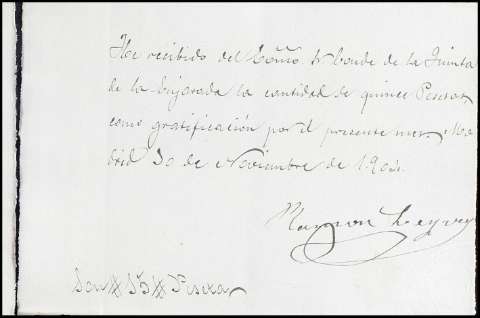 He recibido del Exmo Sr Conde de la Quinta
de la Enjarada la cantidad de quince Pesetas
como gratificación por el presente mes. Ma
drid 30 de Noviembre de 190
Ramon
Son # 15 # Pesetas